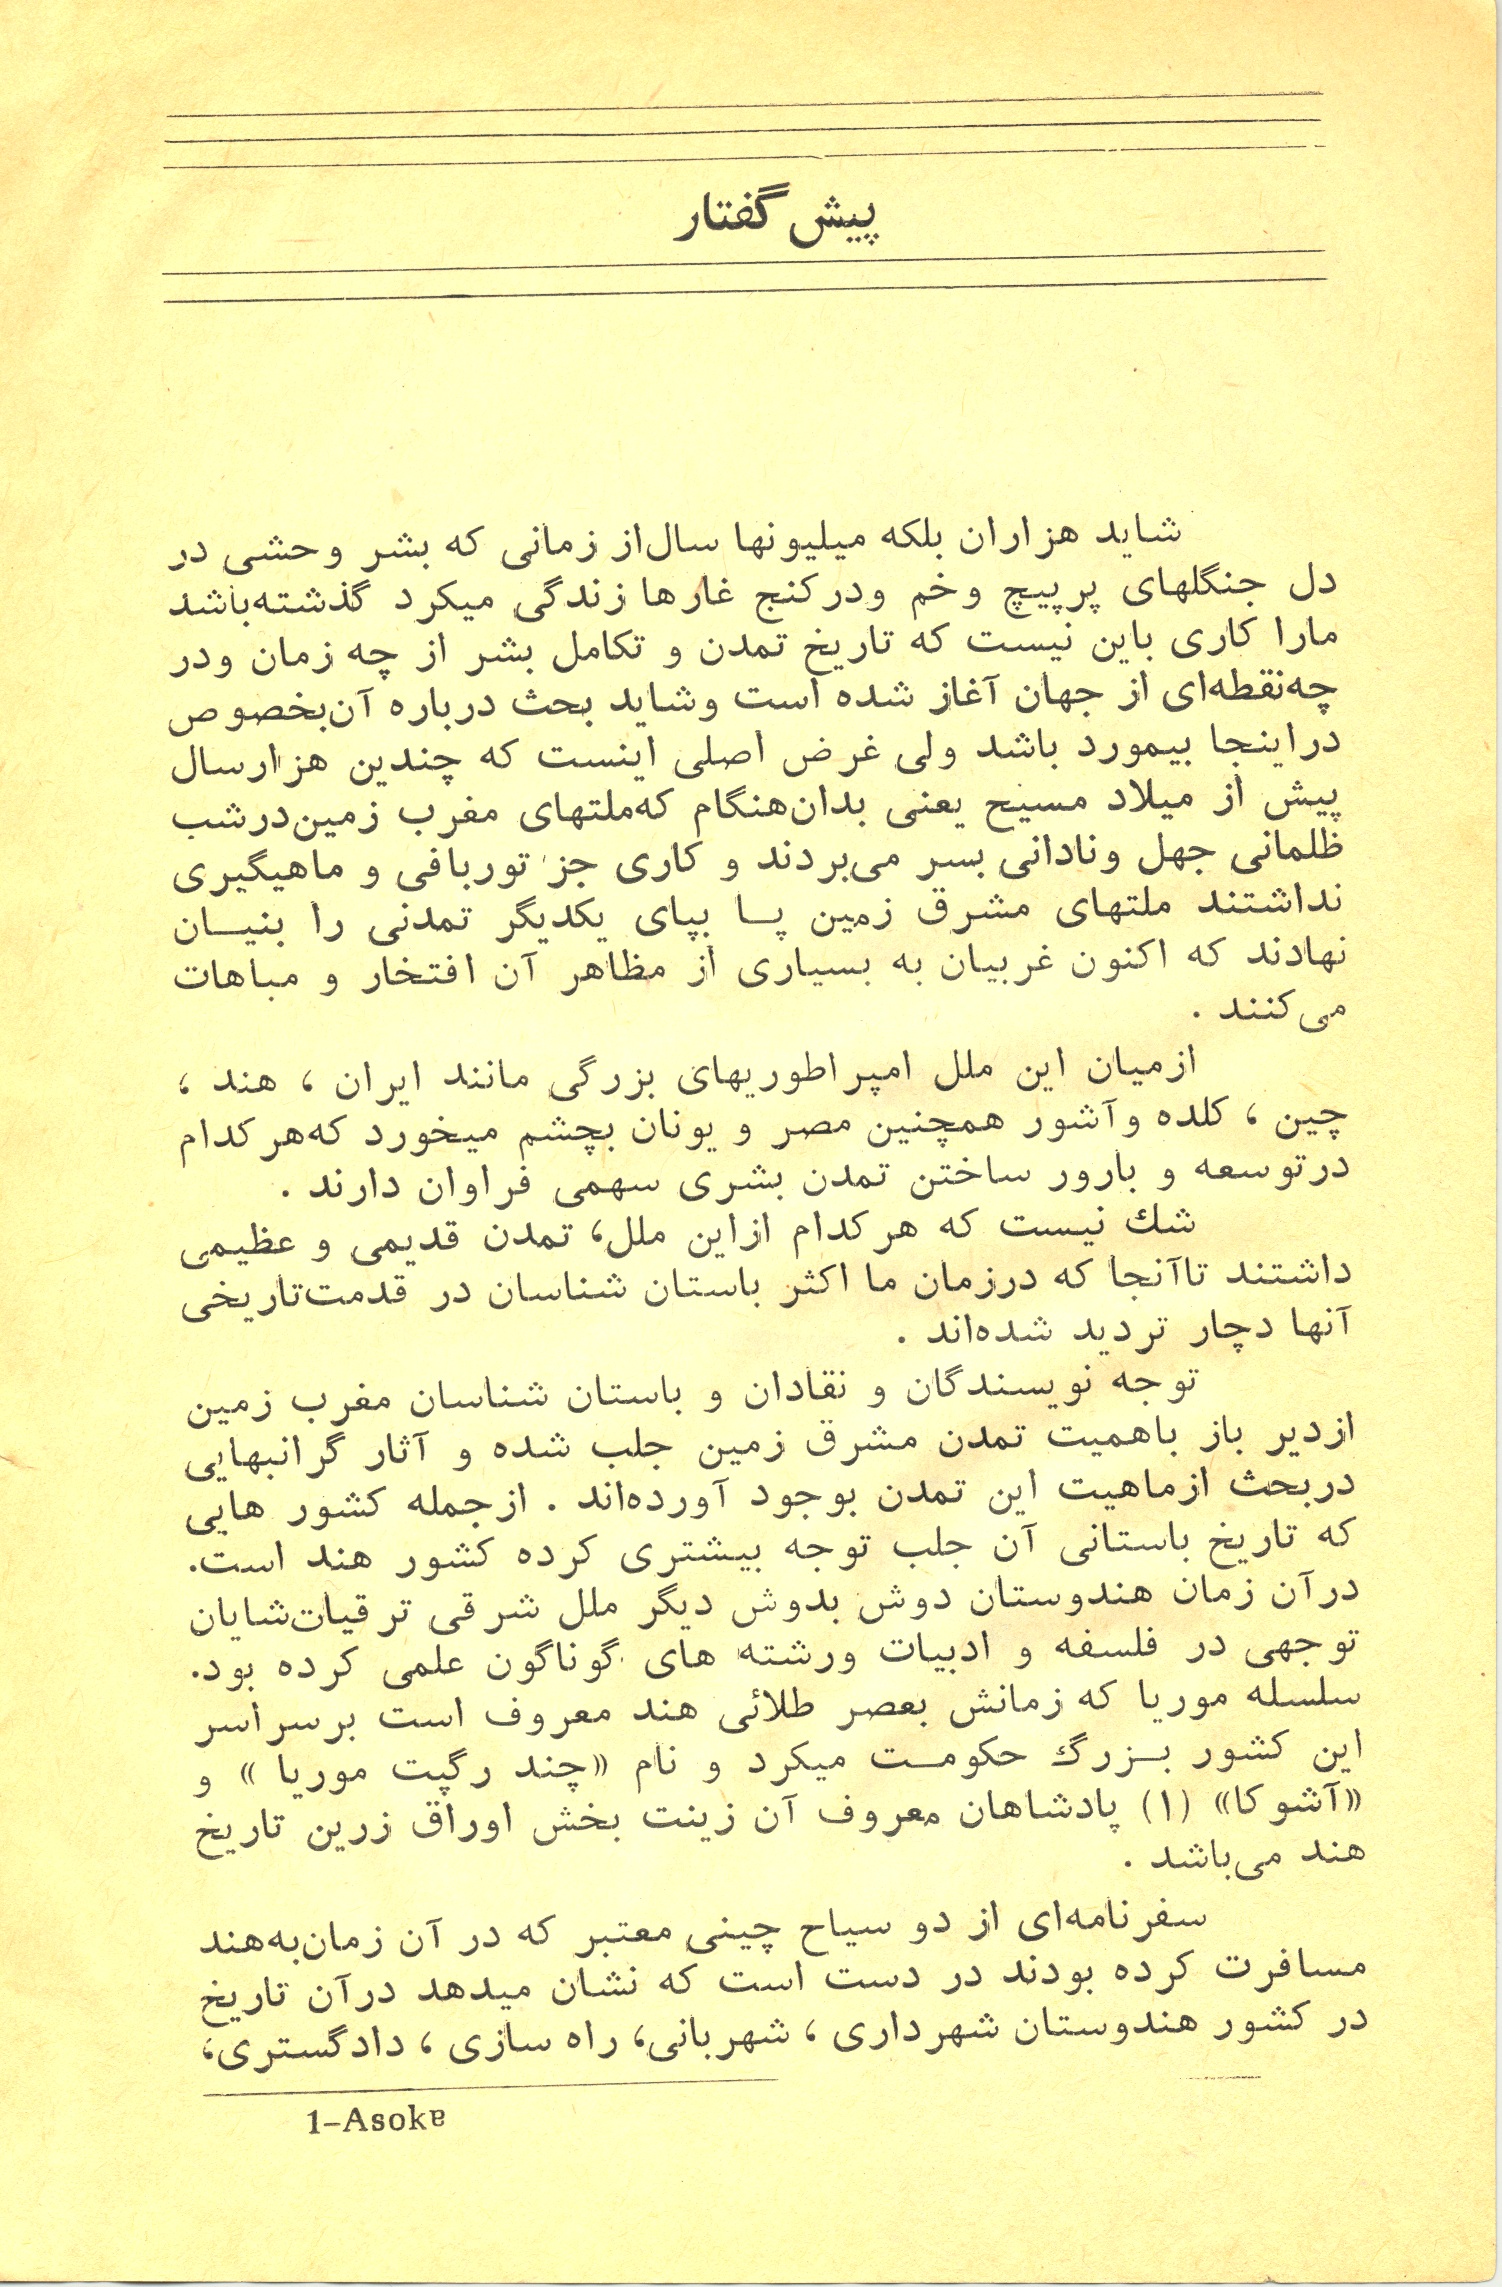 پیش گفتار
شاید هزاران بلکه میلیونها سال‌از زمانی که بشر وحشی در
دل جنگلهای پرپیچ وخم ودرکنج غارها زندگی میکرد گذشته‌باشد
مارا کاری باین نیست که تاریخ تمدن و تکامل بشر از چه زمان ودر
چه‌نقطه‌ای از جهان آغاز شده است وشاید بحث درباره آن‌بخصوص
دراینجا بیمورد باشد ولی غرض اصلی اینست که چندین هزارسال
پیش از میلاد مسیح یعنی بدان‌هنگام که‌ملتهای مغرب زمین‌درشب
ظلمانی جهل ونادانی بسر می‌بردند و کاری جز توربافی و ماهیگیری
نداشتند ملتهای مشرق زمین پـا بپای یکدیگر تمدنی را بنیـان
نهادند که اکنون غربیان به بسیاری از مظاهر آن افتخار و مباهات
می‌کنند .
ازمیان این ملل امپراطوریهای بزرگی مانند ایران ، هند ،
چین ، کلده وآشور همچنین مصر و یونان بچشم میخورد که‌هرکدام
درتوسعه و بارور ساختن تمدن بشری سهمی فراوان دارند .
شك نیست که هرکدام ازاین ملل، تمدن قدیمی و عظیمی
داشتند تاآنجا که درزمان ما اکثر باستان شناسان در قدمت‌تاریخی
آنها دچار تردید شده‌اند .
توجه نویسندگان و نقادان و باستان شناسان مغرب زمین
ازدیر باز باهمیت تمدن مشرق زمین جلب شده و آثار گرانبهایی
دربحث ازماهیت این تمدن بوجود آورده‌اند . ازجمله کشور هایی
که تاریخ باستانی آن جلب توجه بیشتری کرده کشور هند است.
درآن زمان هندوستان دوش بدوش دیگر ملل شرقی ترقیات‌شایان
توجهی در فلسفه و ادبیات ورشته های گوناگون علمی کرده بود.
سلسله موریا که زمانش بعصر طلائی هند معروف است برسراسر
این کشور بـزرگ حکومـت میکرد و نام «چند رگپت موریا » و
«آشوکا» (۱) پادشاهان معروف آن زینت بخش اوراق زرین تاریخ
هند می‌باشد .
سفرنامه‌ای از دو سیاح چینی معتبر که در آن زمان‌به‌هند
مسافرت کرده بودند در دست است که نشان میدهد درآن تاریخ
در کشور هندوستان شهرداری ، شهربانی، راه سازی ، دادگستری،
1–Asoka